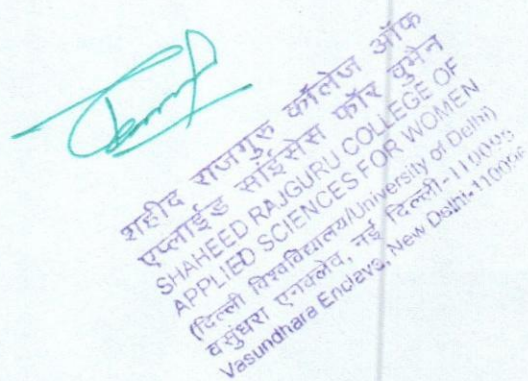 शहीद राजगुरु कॉलेज ऑफ
एप्लाईड साईंसेस फॉर वुमैन
SHAHEED RAJGURU COLLEGE OF
APPLIED SCIENCES FOR WOMEN
(दिल्ली विश्वविद्यालय/University of Delhi)
वसुंधरा एनक्लेव, नई दिल्ली-110096
Vasundhara Enclave, New Delhi-110096